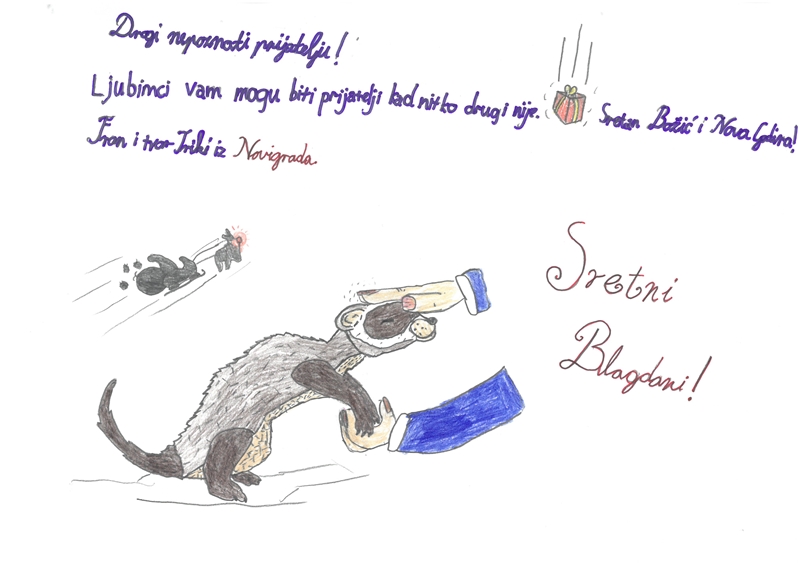 Dragi nepoznati prijatelju!
Ljubimci vam mogu biti prijatelji kad nitko drugi nije. Sretan Božić i Nova Godina!
Fran i tvor Triki iz Novigrada
Sretni
Blagdani!